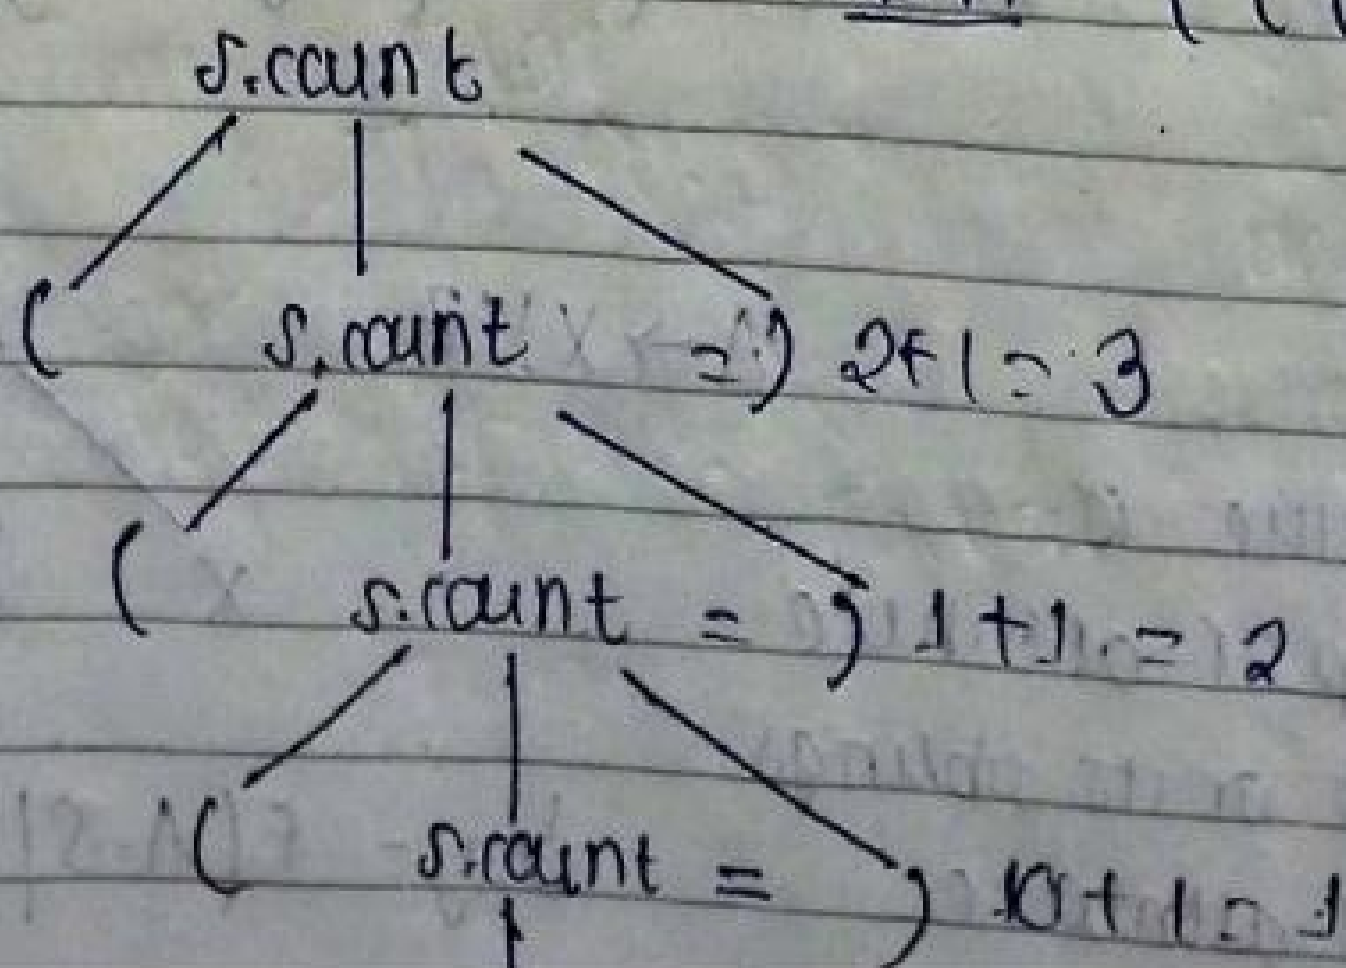 s.count
( s.count = ) 2+1 = 3
( s.count = ) 1+1 = 2
( s.count = ) 0+1 = 1